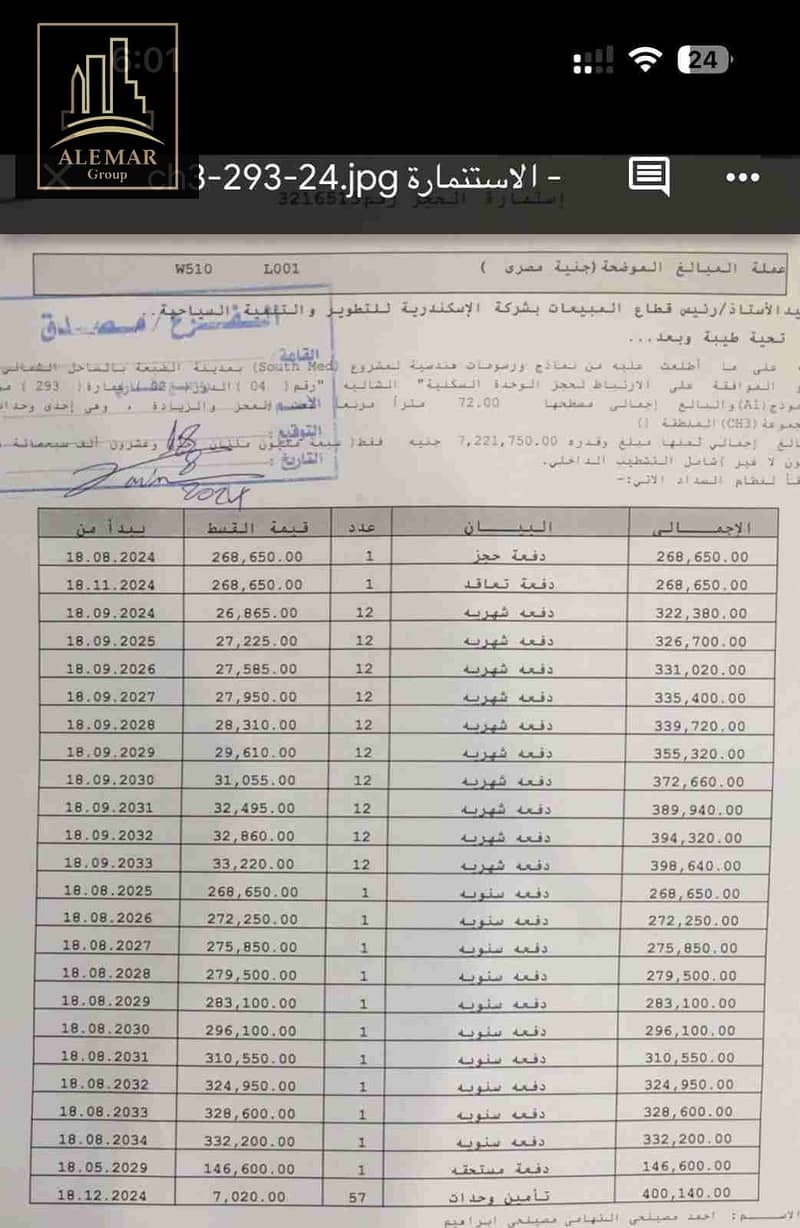 6:01
24
ALEMAR
Group
ch3-293-24.jpg الاستنمارة -
إستمارة الحجز رقم
عملة المبالغ الموضحة (جنية مصرى ) L001 W510
يدالأستاذ/رئيس قطاع المبيعات بشركة الإسكندرية للتطوير والتنمية السياحية..
تحية طيبة وبعد...
على ما أطلعت عليه من نماذج ورسومات هندسية لمشروع (South Med) بمدينة الضبعة بالساحل الشمالي
الموافقة على الارتباط لحجز الوحدة السكنية" الشاليه "رقم( 04 )الدور( 02 )عمارة( 293 )
نموذج(A1)والبالغ إجمالي مسطحها 72.00 متراً مربعاً العجز والزيادة ، وهي إحدى وحدات
جموعة(CH3)المنطقة ()
الغ إجمالي ثمنها مبلغ وقدره 7,221,750.00 جنيه فقط( سبعة مليون مئتان وعشرون ألف سبعمائة
ون لا غير )شامل التشطيب الداخلي.
قاً لنظام السداد الاتي:-
المقترح / مصدق
القامة
الاسم
التوقيع:
التاريخ:
18
8
2024
الإجمــالى البيــــان عدد قيمة القسط يبدأ من
268,650.00 دفعة حجز 1 268,650.00 18.08.2024
268,650.00 دفعة تعاقد 1 268,650.00 18.11.2024
322,380.00 دفعه شهريه 12 26,865.00 18.09.2024
326,700.00 دفعه شهريه 12 27,225.00 18.09.2025
331,020.00 دفعه شهريه 12 27,585.00 18.09.2026
335,400.00 دفعه شهريه 12 27,950.00 18.09.2027
339,720.00 دفعه شهريه 12 28,310.00 18.09.2028
355,320.00 دفعه شهريه 12 29,610.00 18.09.2029
372,660.00 دفعه شهريه 12 31,055.00 18.09.2030
389,940.00 دفعه شهريه 12 32,495.00 18.09.2031
394,320.00 دفعه شهريه 12 32,860.00 18.09.2032
398,640.00 دفعه شهريه 12 33,220.00 18.09.2033
268,650.00 دفعه سنويه 1 268,650.00 18.08.2025
272,250.00 دفعه سنويه 1 272,250.00 18.08.2026
275,850.00 دفعه سنويه 1 275,850.00 18.08.2027
279,500.00 دفعه سنويه 1 279,500.00 18.08.2028
283,100.00 دفعه سنويه 1 283,100.00 18.08.2029
296,100.00 دفعه سنويه 1 296,100.00 18.08.2030
310,550.00 دفعه سنويه 1 310,550.00 18.08.2031
324,950.00 دفعه سنويه 1 324,950.00 18.08.2032
328,600.00 دفعه سنويه 1 328,600.00 18.08.2033
332,200.00 دفعه سنويه 1 332,200.00 18.08.2034
146,600.00 دفعة مستحقه 1 146,600.00 18.05.2029
400,140.00 تأمين وحدات 57 7,020.00 18.12.2024
الاســـم: احمد مصيلحى التهامى مصيلحى ابراهيم